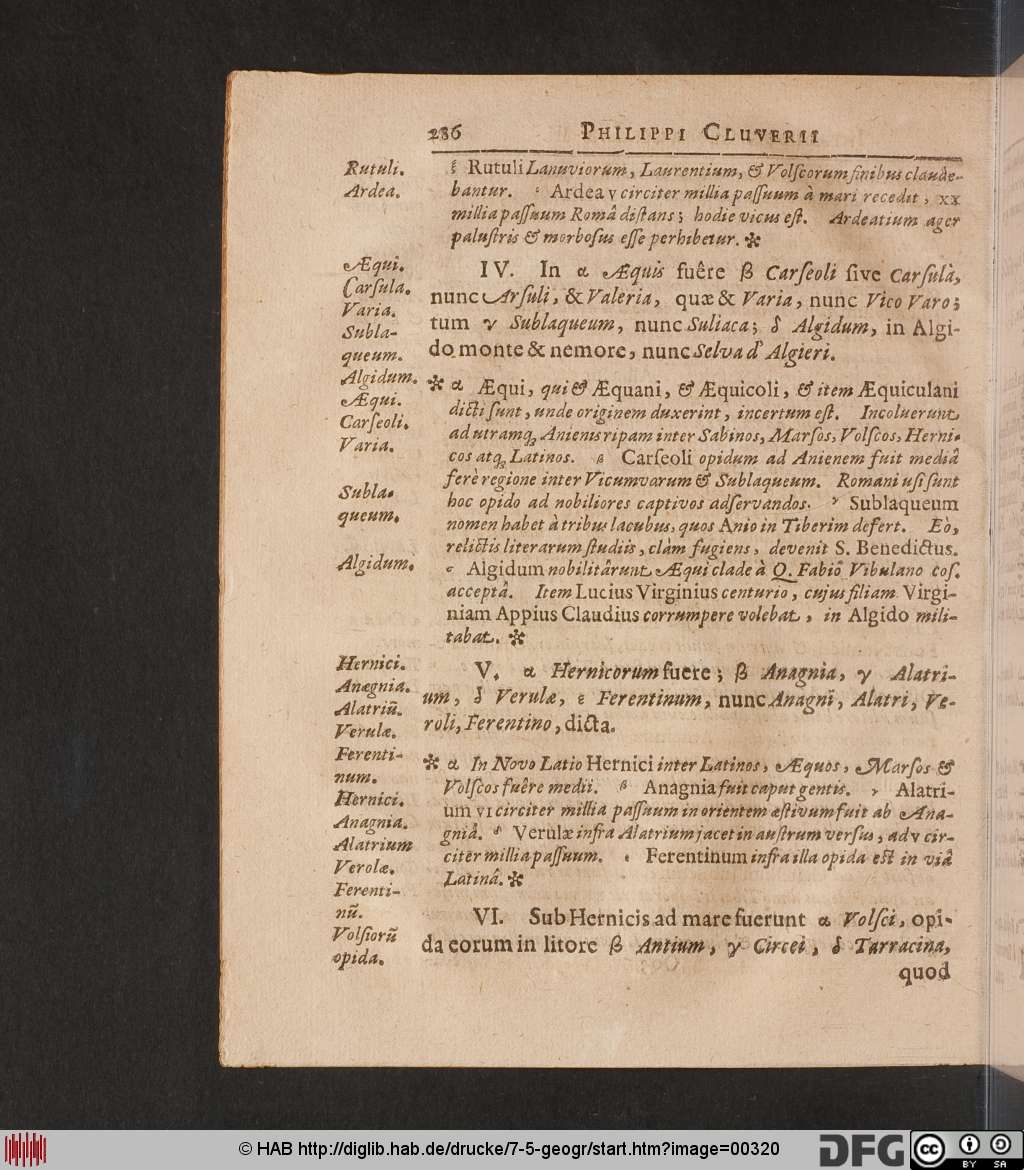 286 PHILIPPI CLUVERII
Rutuli.
Ardea.
ξ Rutuli Lanuviorum, Laurentium, & Volscorum finibus claude-
bantur. ° Ardea v circiter millia passuum à mari recedit, xx
millia passuum Româ distans; hodie vicus est. Ardeatium ager
palustris & morbosus esse perhibetur. *
Æqui.
Carsula.
Varia.
Subla-
queum.
Algidum.
IV. In α Æquis fuêre β Carseoli sive Carsulà,
nunc Arsuli, & Valeria, quæ & Varia, nunc Vico Varo;
tum γ Sublaqueum, nunc Suliaca; δ Algidum, in Algi-
do monte & nemore, nunc Selva d' Algieri.
Æqui.
Carseoli.
Varia.
Subla-
queum.
Algidum.
* α Æqui, qui & Æquani, & Æquicoli, & item Æquiculani
dicti sunt, unde originem duxerint, incertum est. Incoluerunt
ad utramq; Anienis ripam inter Sabinos, Marsos, Volscos, Herni-
cos atq; Latinos. β Carseoli opidum ad Anienem fuit mediâ
ferè regione inter Vicumvarum & Sublaqueum. Romani usi sunt
hoc opido ad nobiliores captivos adservandos. γ Sublaqueum
nomen habet à tribus lacubus, quos Anio in Tiberim defert. Eò,
relictis literarum studiis, clàm fugiens, devenit S. Benedictus.
ε Algidum nobilitârunt Æqui clade à Q. Fabiô Vibulano cos.
acceptâ. Item Lucius Virginius centurio, cujus filiam Virgi-
niam Appius Claudius corrumpere volebat, in Algido mili-
tabat. *
Hernici.
Anægnia.
Alatriũ.
Verulæ.
Ferenti-
num.
V. α Hernicorum fuere; β Anagnia, γ Alatri-
um, δ Verulæ, ε Ferentinum, nunc Anagni, Alatri, Ve-
roli, Ferentino, dicta.
Hernici.
Anagnia.
Alatrium
Verolæ.
Ferenti-
nũ.
* α In Novo Latio Hernici inter Latinos, Æquos, Marsos &
Volscos fuêre medii. β Anagnia fuit caput gentis. γ Alatri-
um VI circiter millia passuum in orientem æstivum fuit ab Ana-
gniâ. δ Verulæ infra Alatrium jacet in austrum versus, ad v cir-
citer millia passuum. ε Ferentinum infra illa opida est in viâ
Latinâ. *
Volsiorũ
opida.
VI. Sub Hernicis ad mare fuerunt α Volsci, opi-
da eorum in litore β Antium, γ Circei, δ Tarracina,
quod
© HAB http://diglib.hab.de/drucke/7-5-geogr/start.htm?image=00320
DFG
cc
BY SA